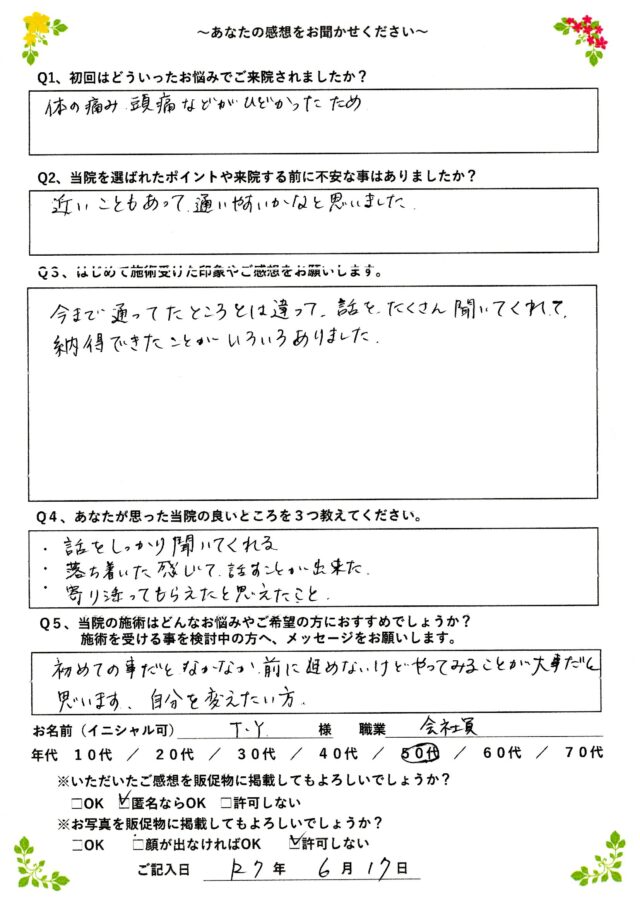 ～あなたの感想をお聞かせください～
Q1、初回はどういったお悩みでご来院されましたか？
体の痛み、頭痛などがひどかったため
Q2、当院を選ばれたポイントや来院する前に不安な事はありましたか？
近いこともあって、通いやすいかなと思いました。
Q3、はじめて施術受けた印象やご感想をお願いします。
今まで通ってたところとは違って、話をたくさん聞いてくれて、
納得できたことがいろいろありました。
Q4、あなたが思った当院の良いところを３つ教えてください。
・話をしっかり聞いてくれる
・落ち着いた感じで、話すことが出来た。
・寄り添ってもらえたと思えたこと。
Q5、当院の施術はどんなお悩みやご希望の方におすすめでしょうか？
施術を受ける事を検討中の方へ、メッセージをお願いします。
初めての事だと、なかなか、前に進めないけどやってみることが大事だと
思います、自分を変えたい方。
お名前（イニシャル可） T.Y. 様 職業 会社員
年代 １０代 ／ ２０代 ／ ３０代 ／ ４０代 ／ ５０代 ／ ６０代 ／ ７０代
※いただいたご感想を販促物に掲載してもよろしいでしょうか？
□OK ☑匿名ならOK □許可しない
※お写真を販促物に掲載してもよろしいでしょうか？
□OK □顔が出なければOK ☑許可しない
ご記入日 R7年 6月17日